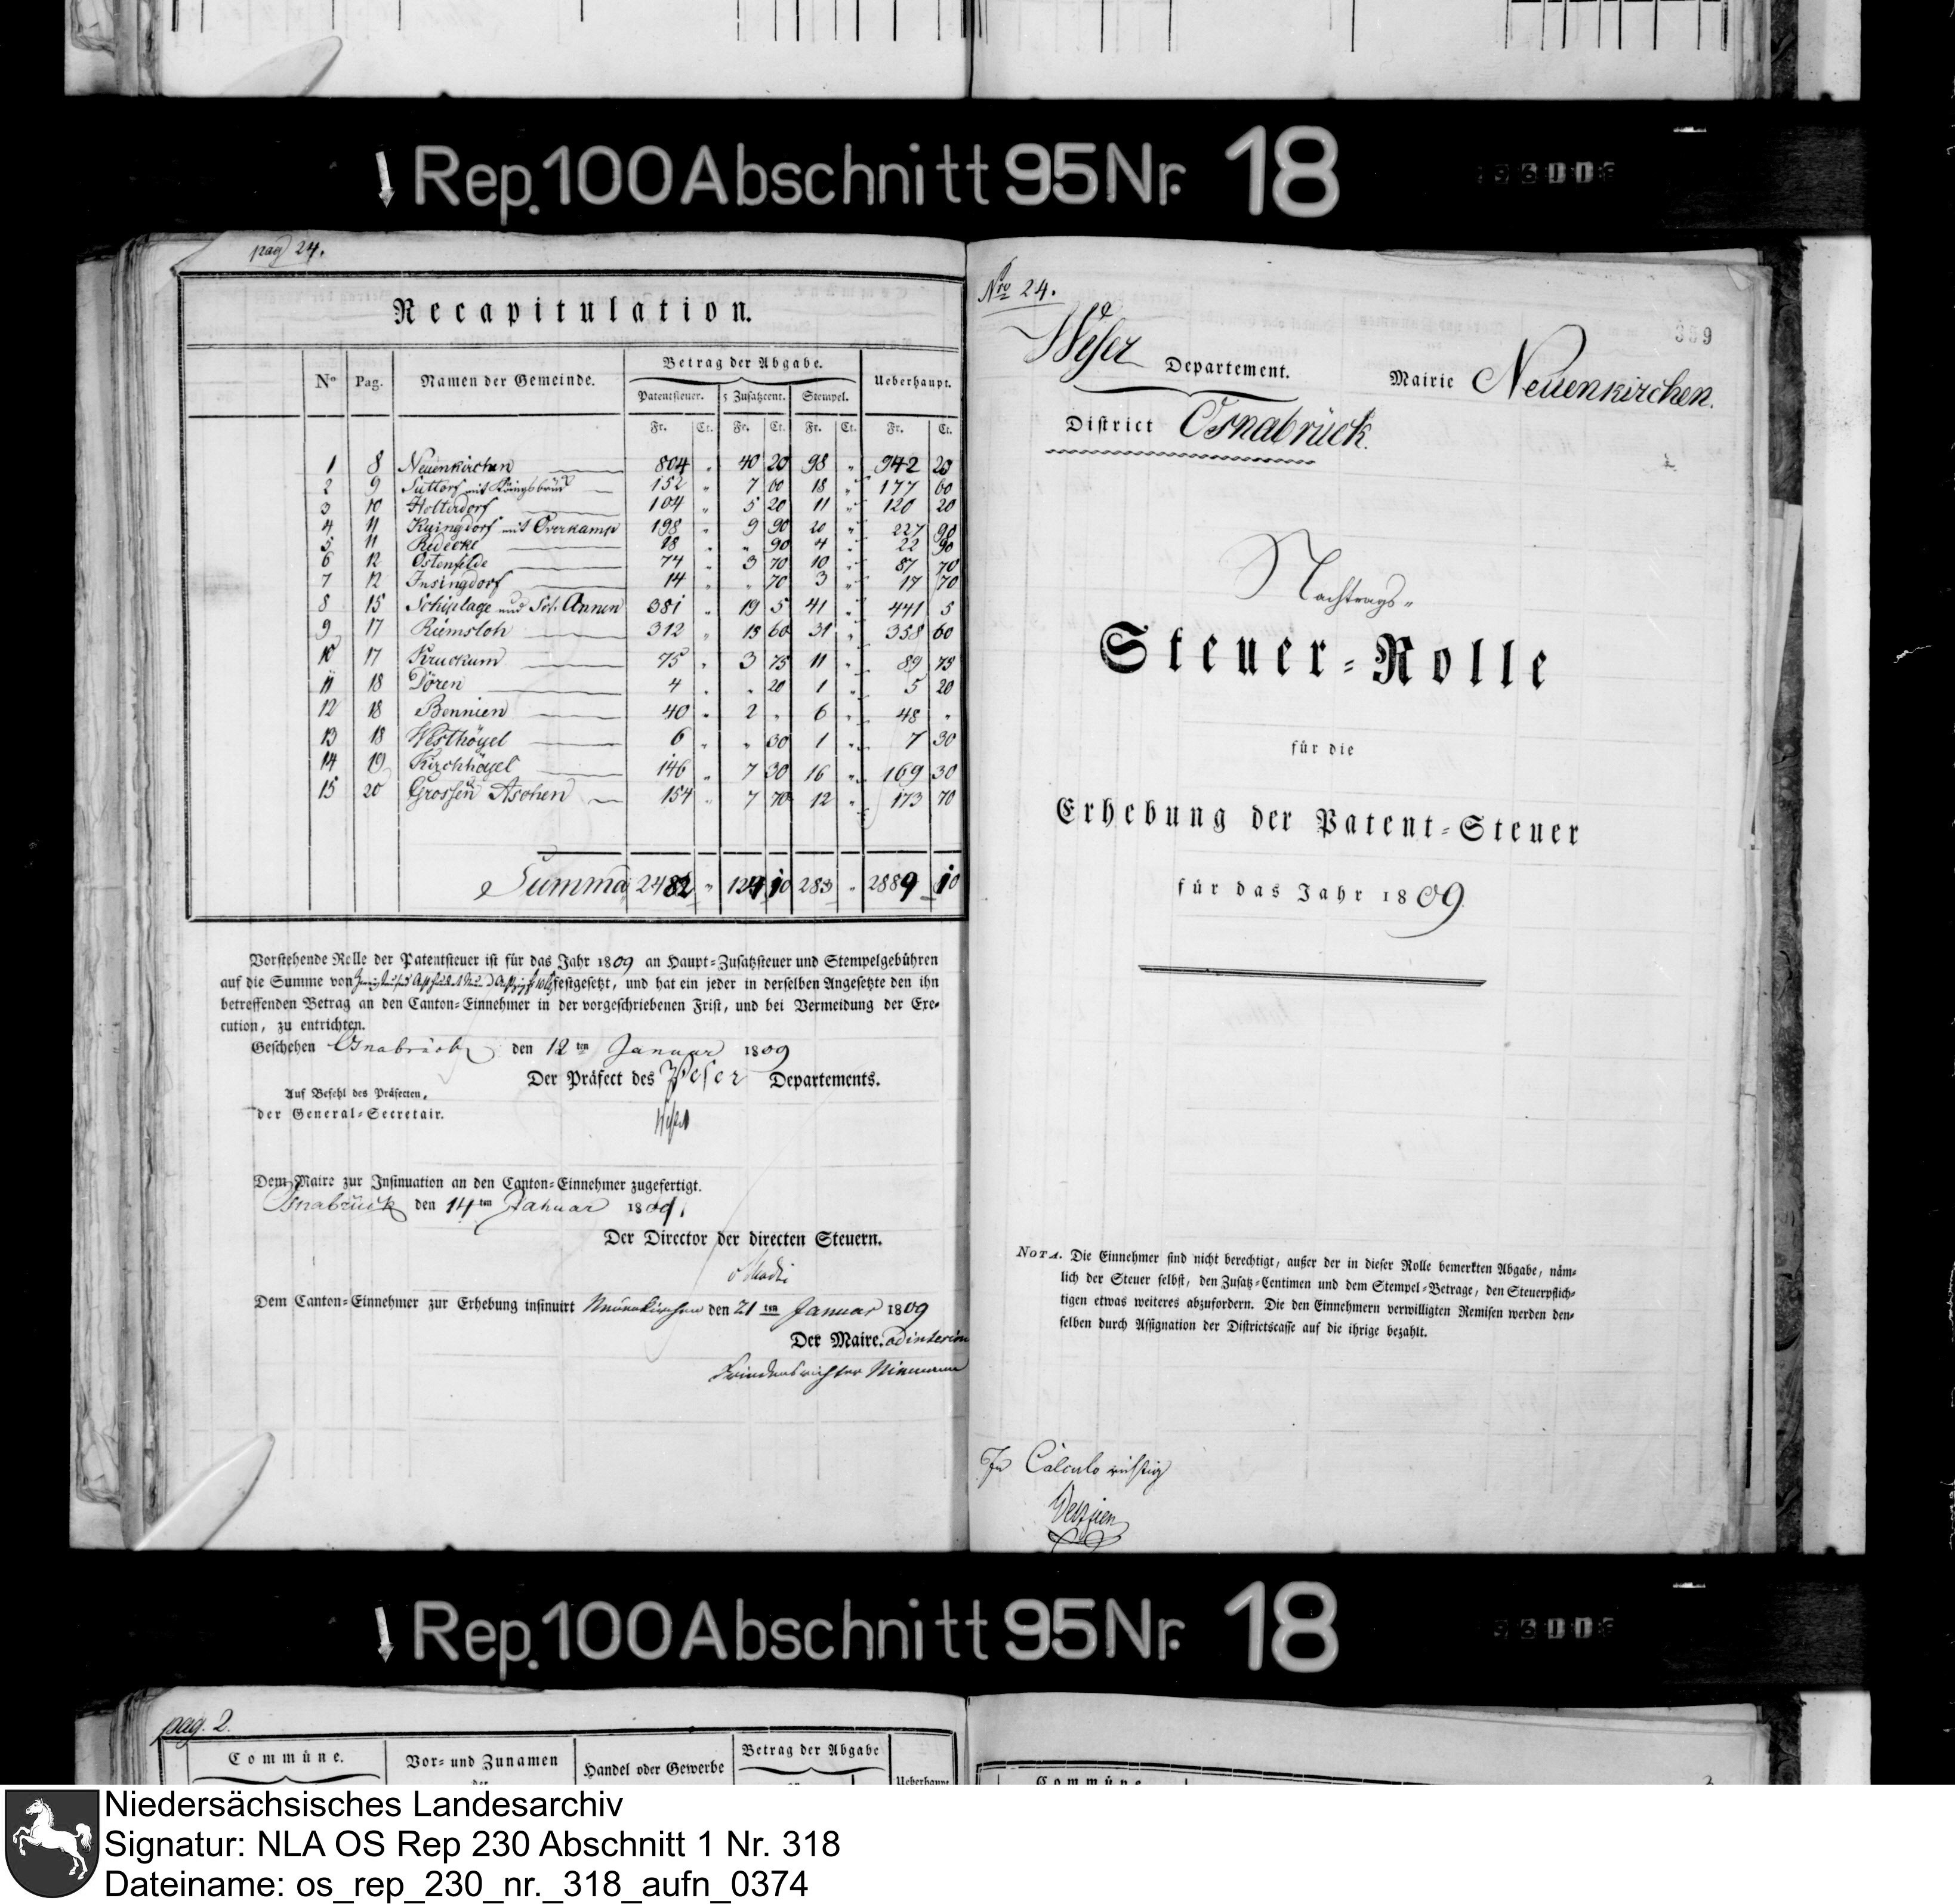 Rep. 100 Abschnitt 95 Nr. 18
pag 24.
Recapitulation.
N° Pag. Namen der Gemeinde. Betrag der Abgabe. Ueberhaupt.
Patentsteuer. 5 Zusatzcent. Stempel.
Fr. Ct. Fr. Ct. Fr. Ct. Fr. Ct.
1 8 Neuenkirchen 804 „ 40 20 98 „ 942 20
2 9 Suttorf mit Königsbrück 152 „ 7 60 18 „ 177 60
3 10 Holterdorf 104 „ 5 20 11 „ 120 20
4 11 Küingdorf mit Overkamp 198 „ 9 90 20 „ 227 90
5 11 Redecke 18 „ „ 90 4 „ 22 90
6 12 Ostenfelde 74 „ 3 70 10 „ 87 70
7 12 Insingdorf 14 „ „ 70 3 „ 17 70
8 15 Schiplage und St. Annen 381 „ 19 5 41 „ 441 5
9 17 Riemsloh 312 „ 15 60 31 „ 358 60
10 17 Kruckum 75 „ 3 75 11 „ 89 75
11 18 Dören 4 „ „ 20 1 „ 5 20
12 18 Bennien 40 „ 2 „ 6 „ 48 „
13 18 Westhöyel 6 „ „ 30 1 „ 7 30
14 19 Kirchhöyel 146 „ 7 30 16 „ 169 30
15 20 Grossen Aschen 154 „ 7 70 12 „ 173 70
Summa 2482 „ 124 10 283 „ 2889 10
Vorstehende Rolle der Patentsteuer ist für das Jahr 1809 an Haupt-Zusatzsteuer und Stempelgebühren
auf die Summe von festgesetzt, und hat ein jeder in derselben Angesetzte den ihn
betreffenden Betrag an den Canton-Einnehmer in der vorgeschriebenen Frist, und bei Vermeidung der Exe-
cution, zu entrichten.
Geschehen Osnabrück den 12ten Januar 1809
Der Präfect des Weser Departements.
Auf Befehl des Präfecten,
der General-Secretair.
Dem Maire zur Insinuation an den Canton-Einnehmer zugefertigt.
Osnabrück den 14ten Januar 1809.
Der Director der directen Steuern.
Dem Canton-Einnehmer zur Erhebung insinuirt Neuenkirchen den 21ten Januar 1809
Der Maire. ad interim
Friedensrichter Niemann
Nro 24.
359
Weser Departement. Mairie Neuenkirchen.
District Osnabrück.
Nachtrags-
Steuer-Rolle
für die
Erhebung der Patent-Steuer
für das Jahr 1809
NOTA. Die Einnehmer sind nicht berechtigt, außer der in dieser Rolle bemerkten Abgabe, näm-
lich der Steuer selbst, den Zusatz-Centimen und dem Stempel-Betrage, den Steuerpflich-
tigen etwas weiteres abzufordern. Die den Einnehmern verwilligten Remisen werden den-
selben durch Assignation der Districtscasse auf die ihrige bezahlt.
In Calculo richtig
Rep. 100 Abschnitt 95 Nr. 18
pag. 2.
Commüne. Vor- und Zunamen Handel oder Gewerbe Betrag der Abgabe Ueberhaupt
der
Commüne
3
Niedersächsisches Landesarchiv
Signatur: NLA OS Rep 230 Abschnitt 1 Nr. 318
Dateiname: os_rep_230_nr._318_aufn_0374